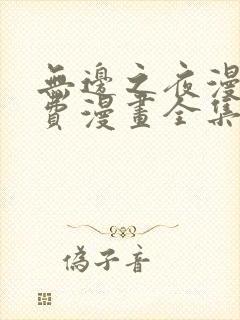 無邊之夜漫
費漫畫全集
偽子音